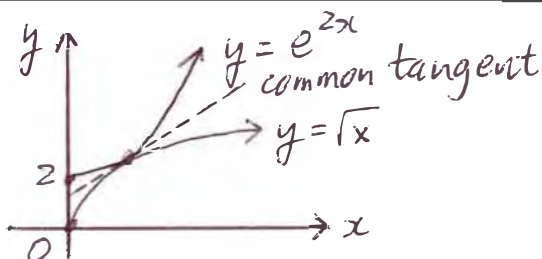 y
y = e^{2x}
common tangent
y = √x
2
0
x